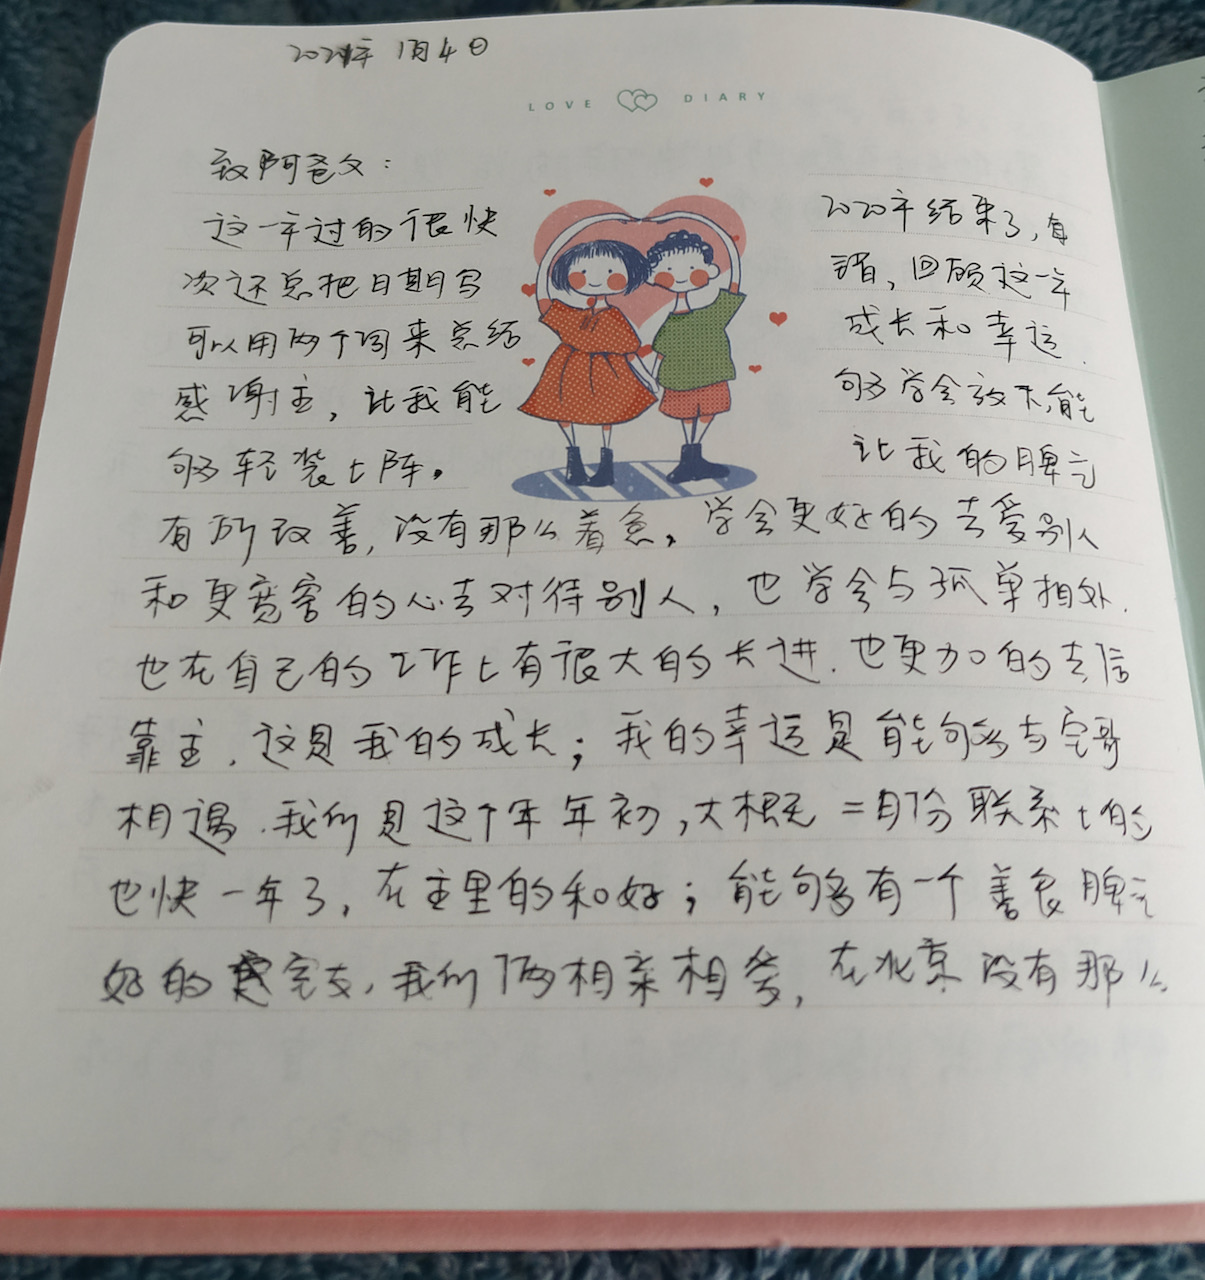 2021年1月4日
LOVE DIARY
致阿爸父：
这一年过的很快 2020年结束了,每
次还总把日期写 错，回顾这一年
可以用两个词来总结 成长和幸运.
感谢主，让我能 够学会放下,能
够轻装上阵。 让我的脾气
有所改善,没有那么着急。学会更好的去爱别人
和更宽容的心去对待别人，也学会与孤单相处.
也在自己的工作上有很大的长进.也更加的去信
靠主.这是我的成长；我的幸运是能够与宝哥
相遇.我们是这个年年初,大概元=月份联系上的
也快一年了,在主里的和好；能够有一个善良脾气
好的室友,我们俩相亲相爱,在北京没有那么